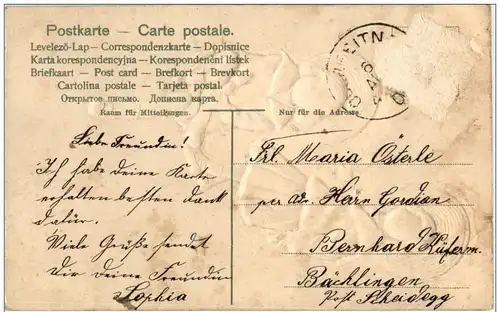 Postkarte — Carte postale.
Levelező-Lap — Correspondenzkarte — Dopisnice
Karta korespondencyjna — Korespondenční lístek
Briefkaart — Post card — Brefkort — Brevkort
Cartolina postale — Tarjeta postal.
Открытое письмо. Дописна карта.
Raum für Mitteilungen.
Nur für die Adresse.
Liebe Freundin!
Ich habe deine Karte
erhalten besten dank
dafür.
Viele Grüße sendet
Dir deine Freundin
Sophia
Frl. Maria Österle
per adr. Herrn Gordian
Bernhard Küferm.
Bächlingen,
Post Scheidegg